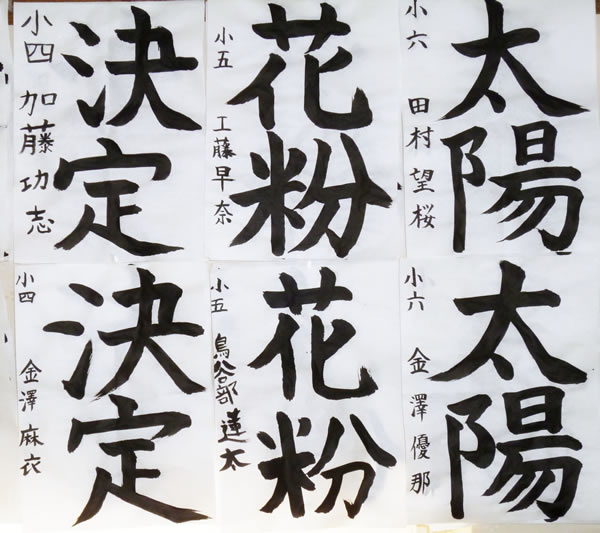 太陽
小六 田村望桜
花粉
小五 工藤早奈
決定
小四 加藤功志
太陽
小六 金澤優那
花粉
小五 鳥谷部蓮太
決定
小四 金澤麻衣